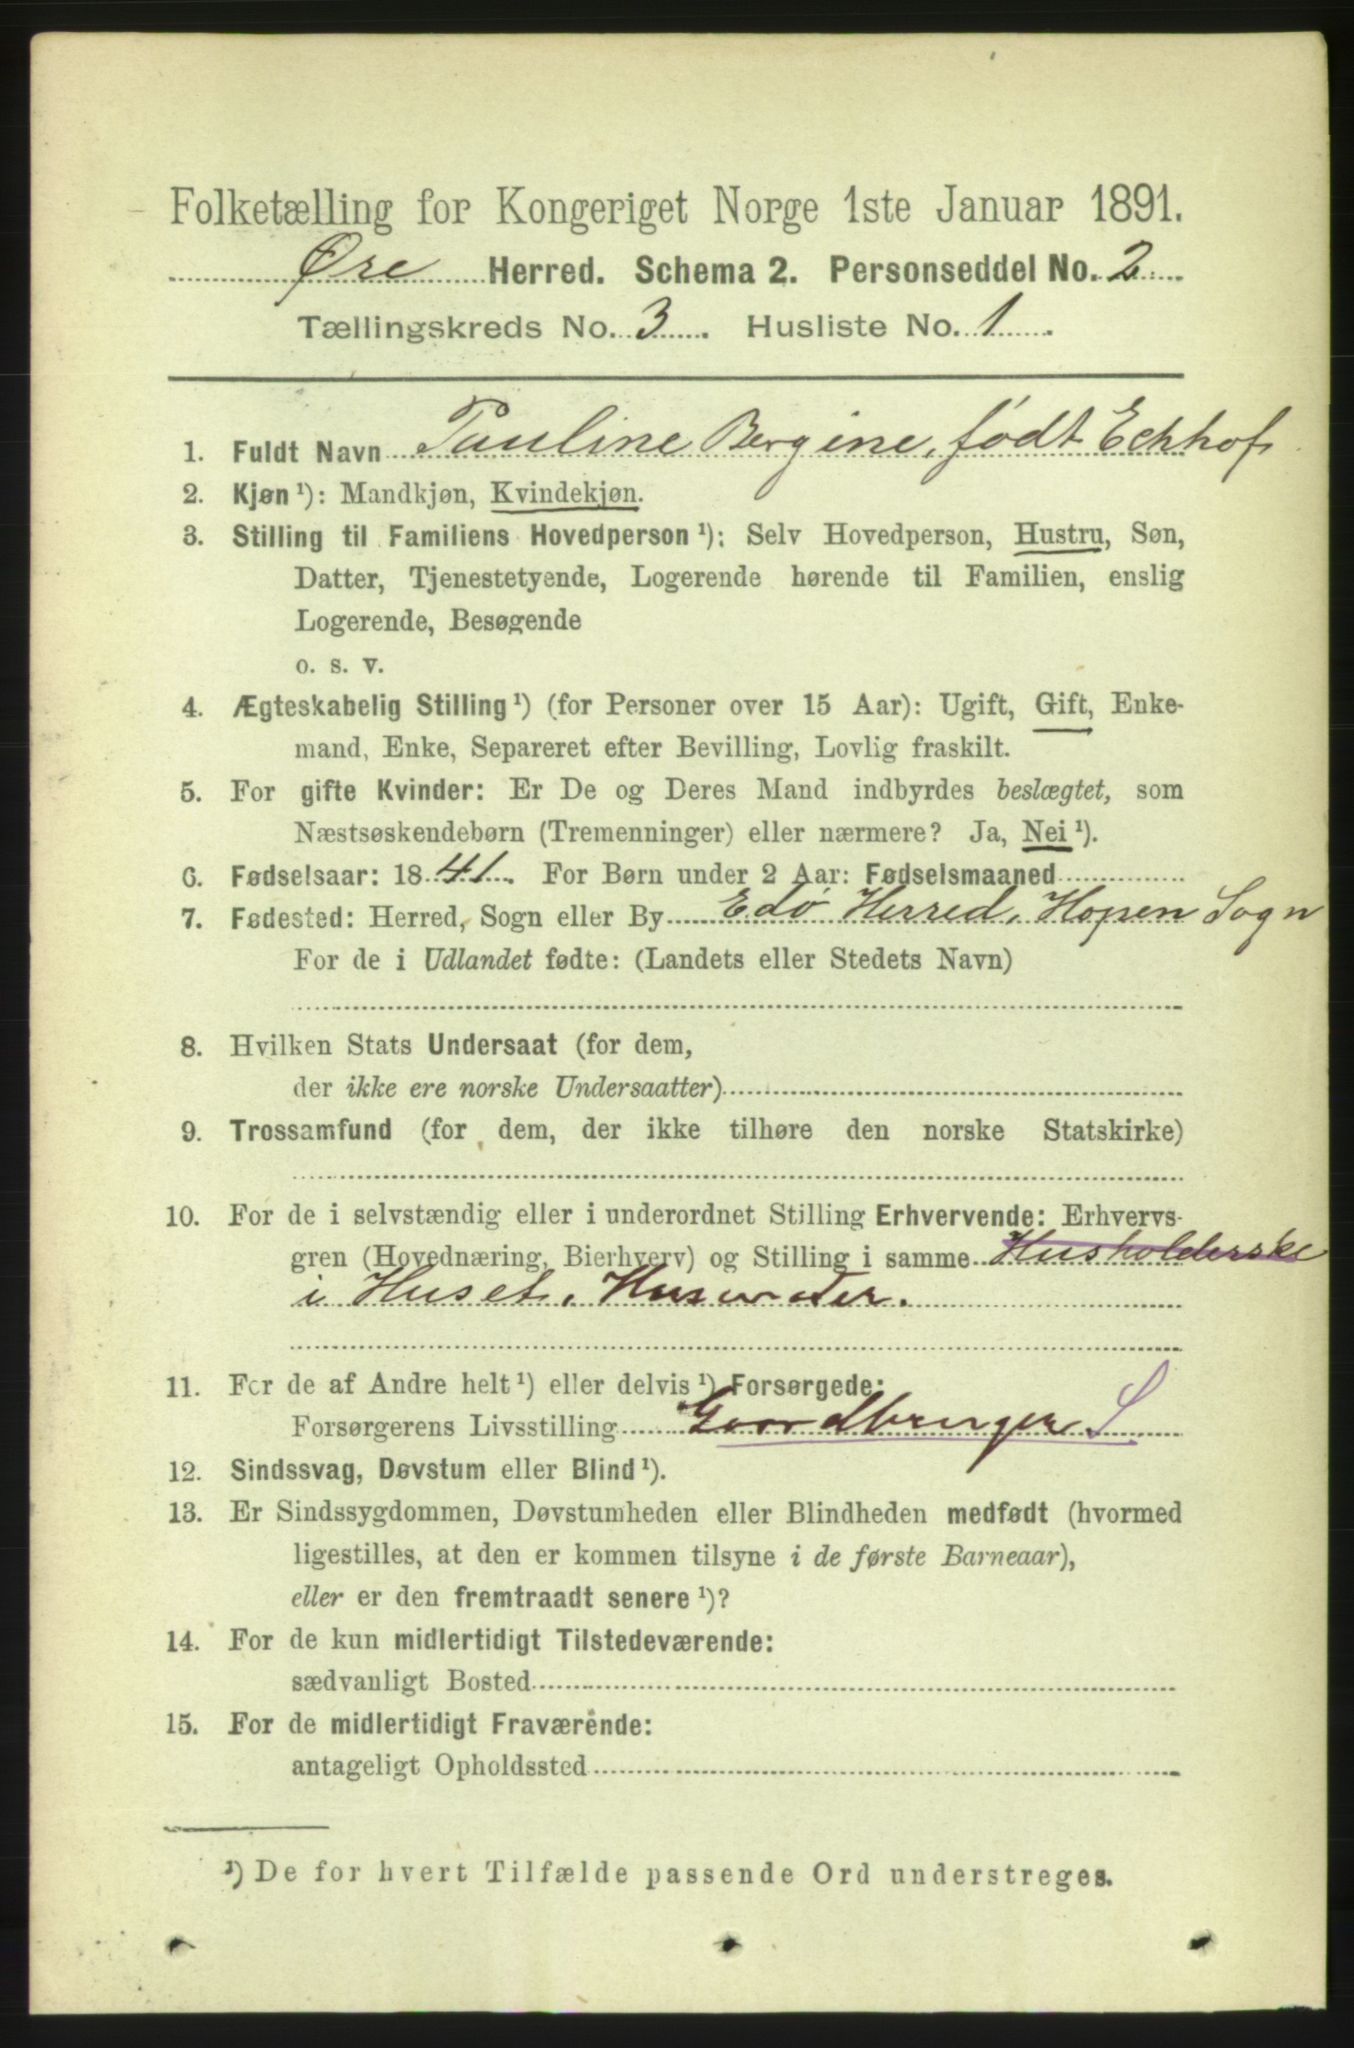 Folketælling for Kongeriget Norge 1ste Januar 1891.
Øre Herred. Schema 2. Personseddel No. 2
Tællingskreds No. 3. Husliste No. 1.
1. Fuldt Navn Pauline Bergine, født Eckhof
2. Kjøn ¹): Mandkjøn, Kvindekjøn.
3. Stilling til Familiens Hovedperson ¹): Selv Hovedperson, Hustru, Søn,
Datter, Tjenestetyende, Logerende hørende til Familien, enslig
Logerende, Besøgende
o. s. v.
4. Ægteskabelig Stilling ¹) (for Personer over 15 Aar): Ugift, Gift, Enke-
mand, Enke, Separeret efter Bevilling, Lovlig fraskilt.
5. For gifte Kvinder: Er De og Deres Mand indbyrdes beslægtet, som
Næstsøskendebørn (Tremenninger) eller nærmere? Ja, Nei ¹).
6. Fødselsaar: 1841. For Børn under 2 Aar: Fødselsmaaned
7. Fødested: Herred, Sogn eller By Edø Herred, Hopen Sogn
For de i Udlandet fødte: (Landets eller Stedets Navn)
8. Hvilken Stats Undersaat (for dem,
der ikke ere norske Undersaatter)
9. Trossamfund (for dem, der ikke tilhøre den norske Statskirke)
10. For de i selvstændig eller i underordnet Stilling Erhvervende: Erhvervs-
gren (Hovednæring, Bierhverv) og Stilling i samme Husholderske
i Huset, Husmoder.
11. For de af Andre helt ¹) eller delvis ¹) Forsørgede:
Forsørgerens Livsstilling Gaardbruger S
12. Sindssvag, Døvstum eller Blind ¹).
13. Er Sindssygdommen, Døvstumheden eller Blindheden medfødt (hvormed
ligestilles, at den er kommen tilsyne i de første Barneaar),
eller er den fremtraadt senere ¹)?
14. For de kun midlertidigt Tilstedeværende:
sædvanligt Bosted
15. For de midlertidigt Fraværende:
antageligt Opholdssted
¹) De for hvert Tilfælde passende Ord understreges.